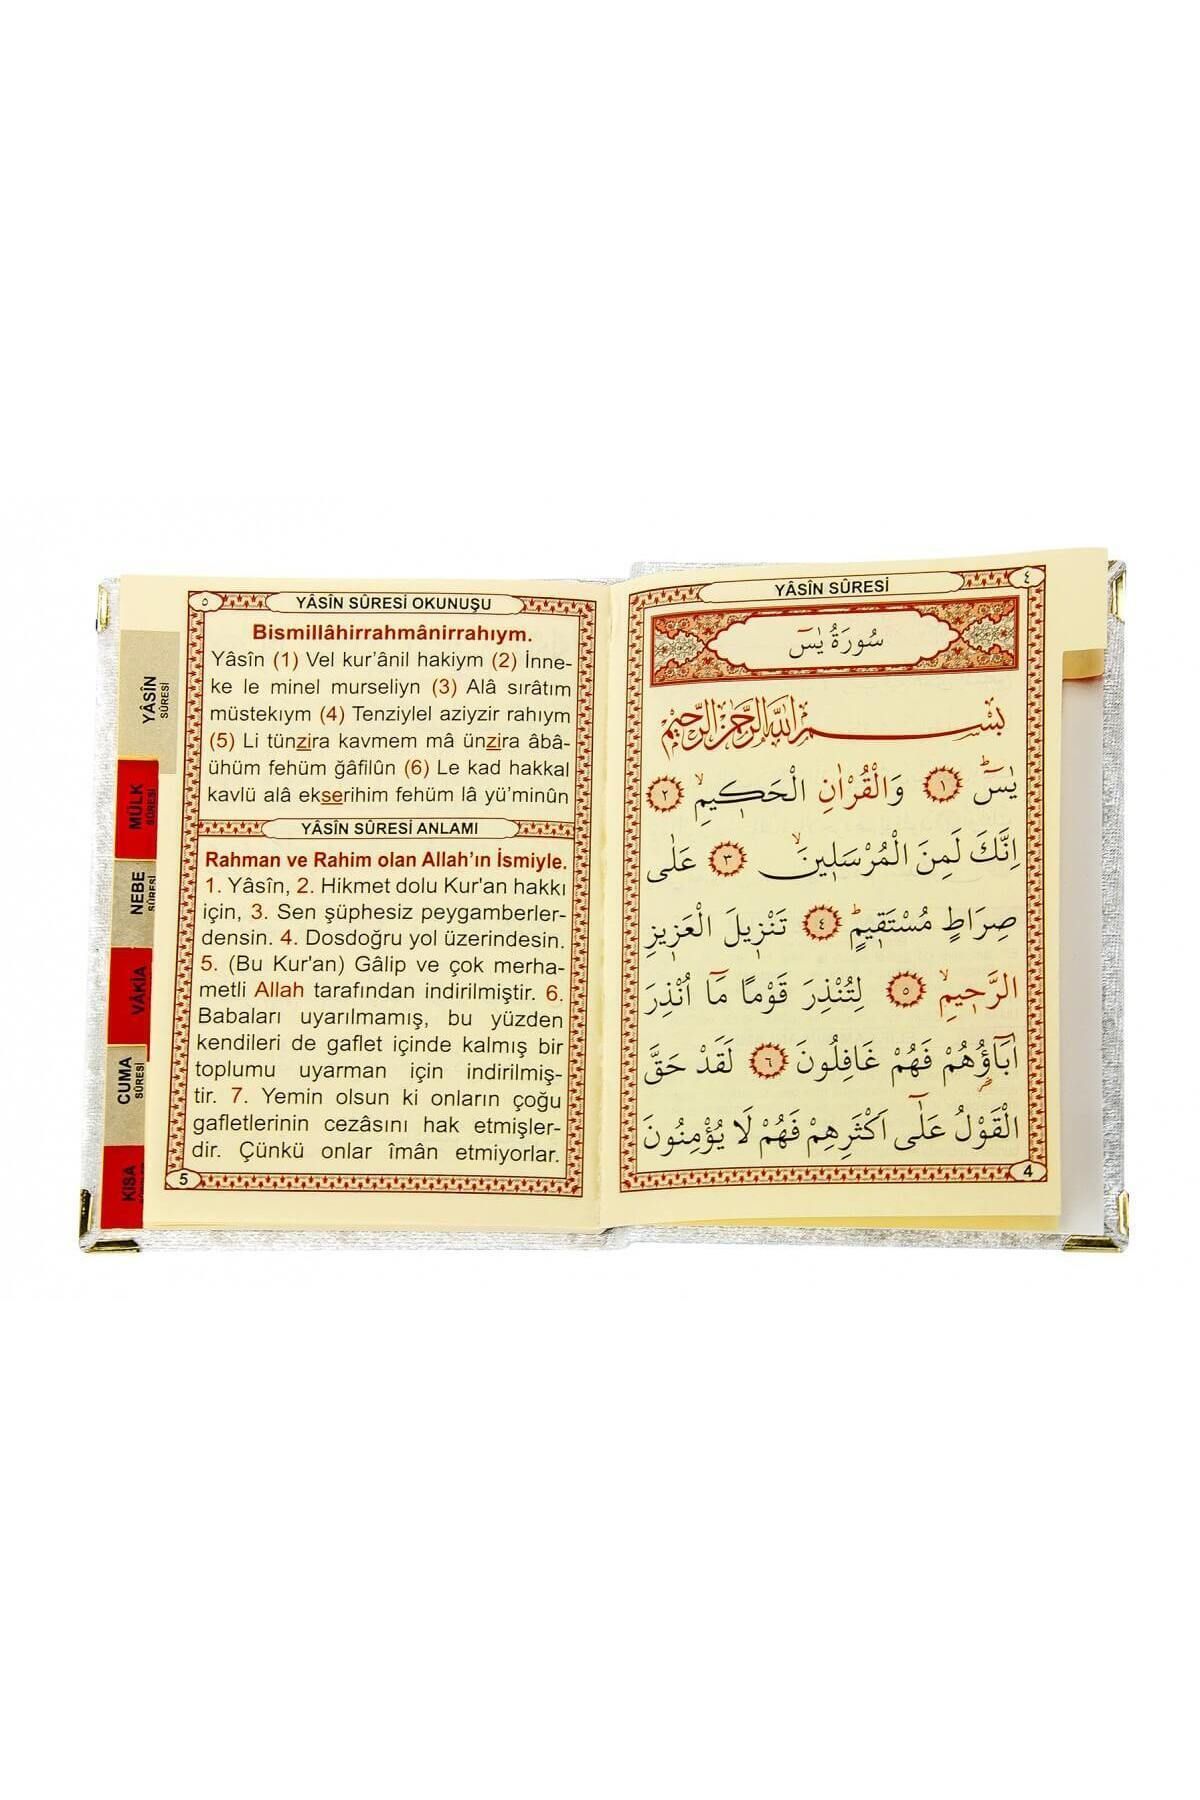 YÂSÎN SÛRESİ
٤
سُورَةُ يٰسٓ
بِسْمِ اللّٰهِ الرَّحْمٰنِ الرَّحٖيمِ
يٰسٓۜ ١ وَالْقُرْاٰنِ الْحَكٖيمِۙ ٢
اِنَّكَ لَمِنَ الْمُرْسَلٖينَۙ ٣ عَلٰى
صِرَاطٍ مُسْتَقٖيمٍۜ ٤ تَنْزٖيلَ الْعَزٖيزِ
الرَّحٖيمِۙ ٥ لِتُنْذِرَ قَوْمًا مَٓا اُنْذِرَ
اٰبَٓاؤُ۬هُمْ فَهُمْ غَافِلُونَ ٦ لَقَدْ حَقَّ
الْقَوْلُ عَلٰٓى اَكْثَرِهِمْ فَهُمْ لَا يُؤْمِنُونَ
4
٥
YÂSÎN SÛRESİ OKUNUŞU
Bismillâhirrahmânirrahıym.
Yâsîn (1) Vel kur’ânil hakiym (2) İnne-
ke le minel murseliyn (3) Alâ sırâtım
müstekıym (4) Tenziylel aziyzir rahıym
(5) Li tünzira kavmem mâ ünzira âbâ-
ühüm fehüm ğâfilûn (6) Le kad hakkal
kavlü alâ ekserihim fehüm lâ yü’minûn
YÂSÎN SÛRESİ ANLAMI
Rahman ve Rahim olan Allah’ın İsmiyle.
1. Yâsîn, 2. Hikmet dolu Kur'an hakkı
için, 3. Sen şüphesiz peygamberler-
densin. 4. Dosdoğru yol üzerindesin.
5. (Bu Kur'an) Gâlip ve çok merha-
metli Allah tarafından indirilmiştir. 6.
Babaları uyarılmamış, bu yüzden
kendileri de gaflet içinde kalmış bir
toplumu uyarman için indirilmiş-
tir. 7. Yemin olsun ki onların çoğu
gafletlerinin cezâsını hak etmişler-
dir. Çünkü onlar îmân etmiyorlar.
5
YÂSÎN
SÛRESİ
MÜLK
SÛRESİ
NEBE
SÛRESİ
VÂKIA
CUMA
SÛRESİ
KISA